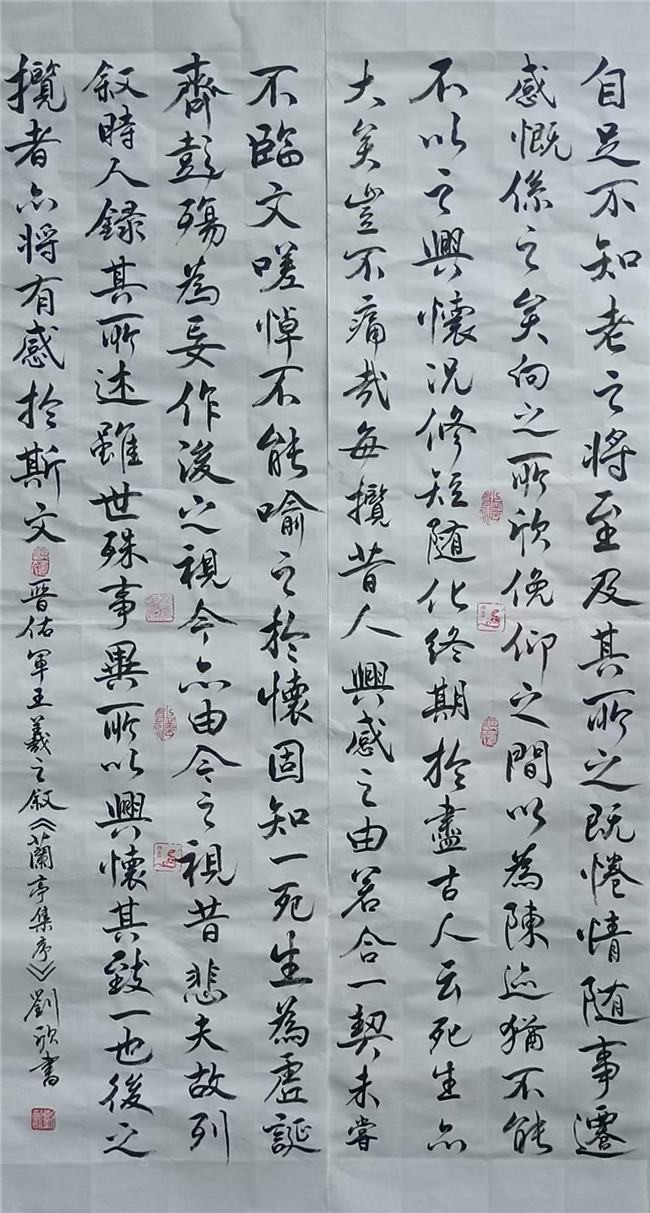 自足不知老之将至及其所之既惓情随事遷
感慨係之矣向之所欣俛仰之間以為陳迹猶不能
不以之興懷況修短随化終期於盡古人云死生亦
大矣豈不痛哉每攬昔人興感之由若合一契未嘗
不臨文嗟悼不能喻之於懷固知一死生為虚誕
齊彭殤為妄作後之視今亦由今之視昔悲夫故列
叙時人録其所述雖世殊事異所以興懷其致一也後之
攬者亦将有感於斯文 晉佑軍王羲之叙《蘭亭集序》劉欣書